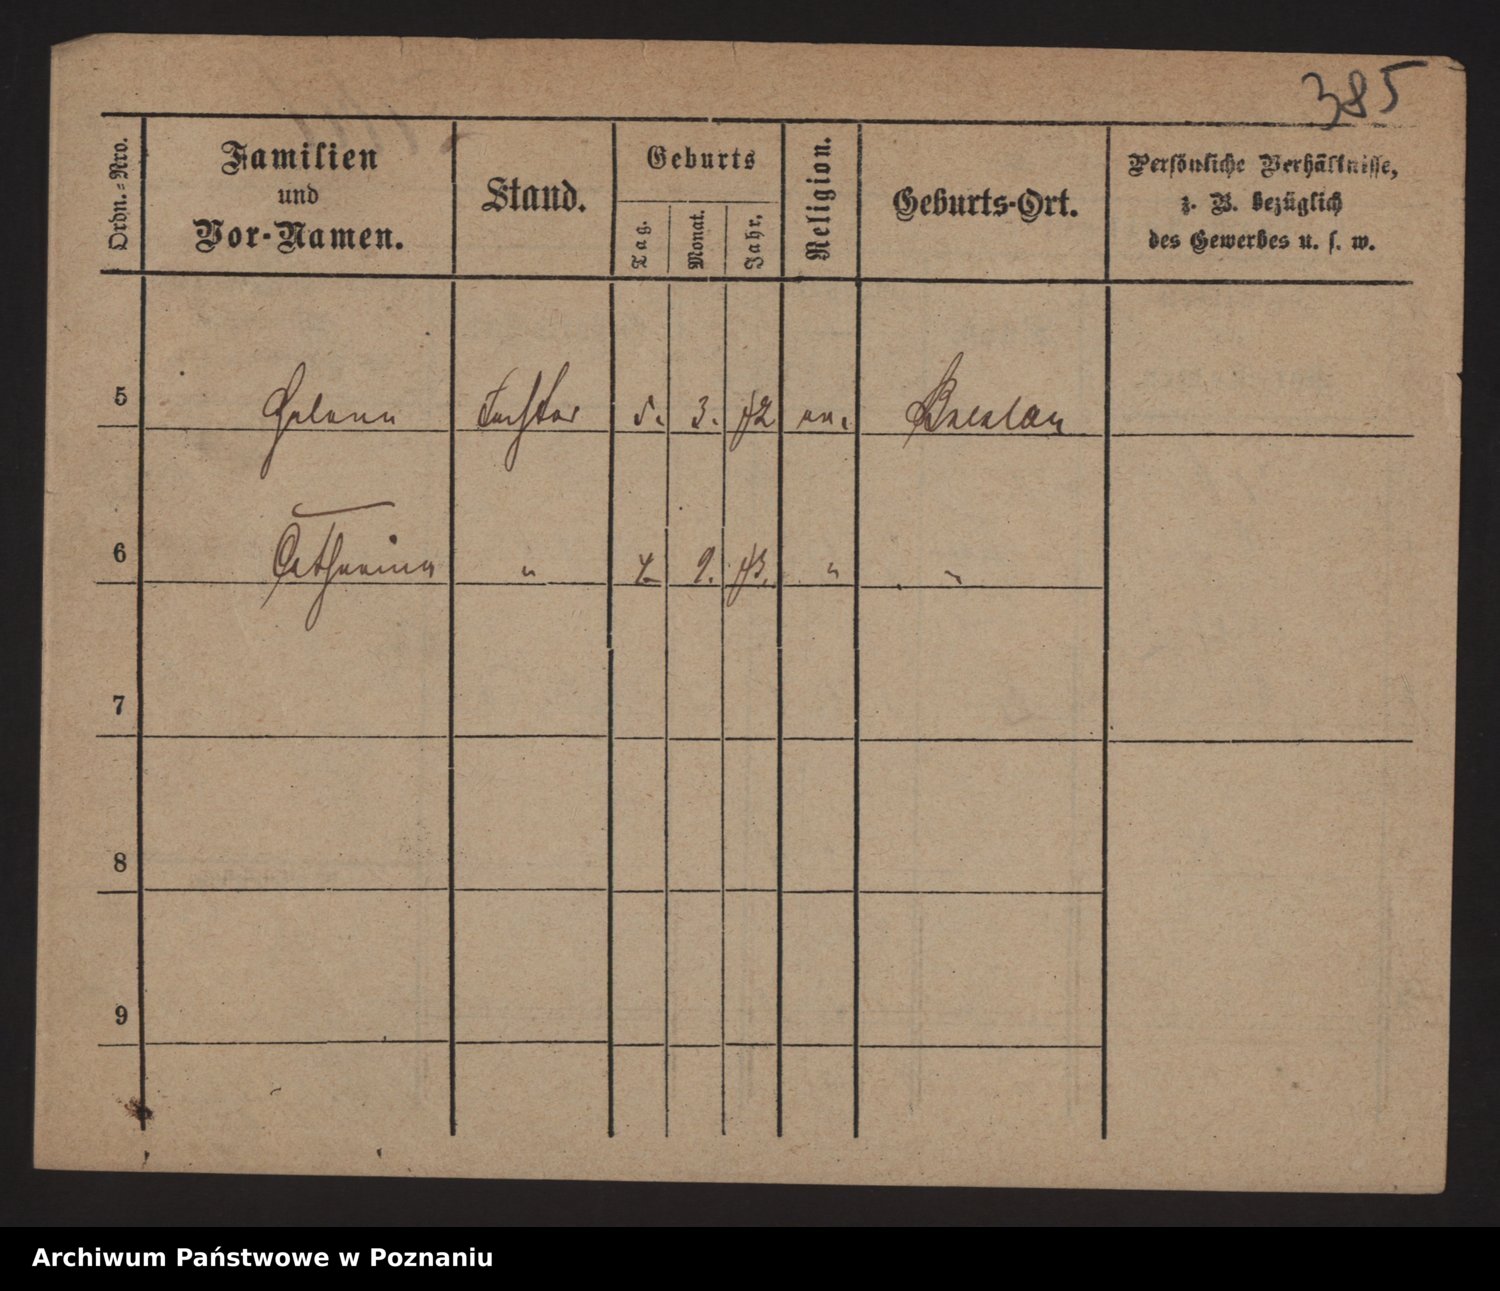 385
Ordn.-Nro.
Familien
und
Vor-Namen.
Stand.
Geburts
Tag.
Monat.
Jahr.
Religion.
Geburts-Ort.
Persönliche Verhältnisse,
z. B. bezüglich
des Gewerbes u. s. w.
5 Helene Tochter 5. 3. 72 ev. Breslau
6 Catharina " 9. 73. " "
7
8
9
Archiwum Państwowe w Poznaniu